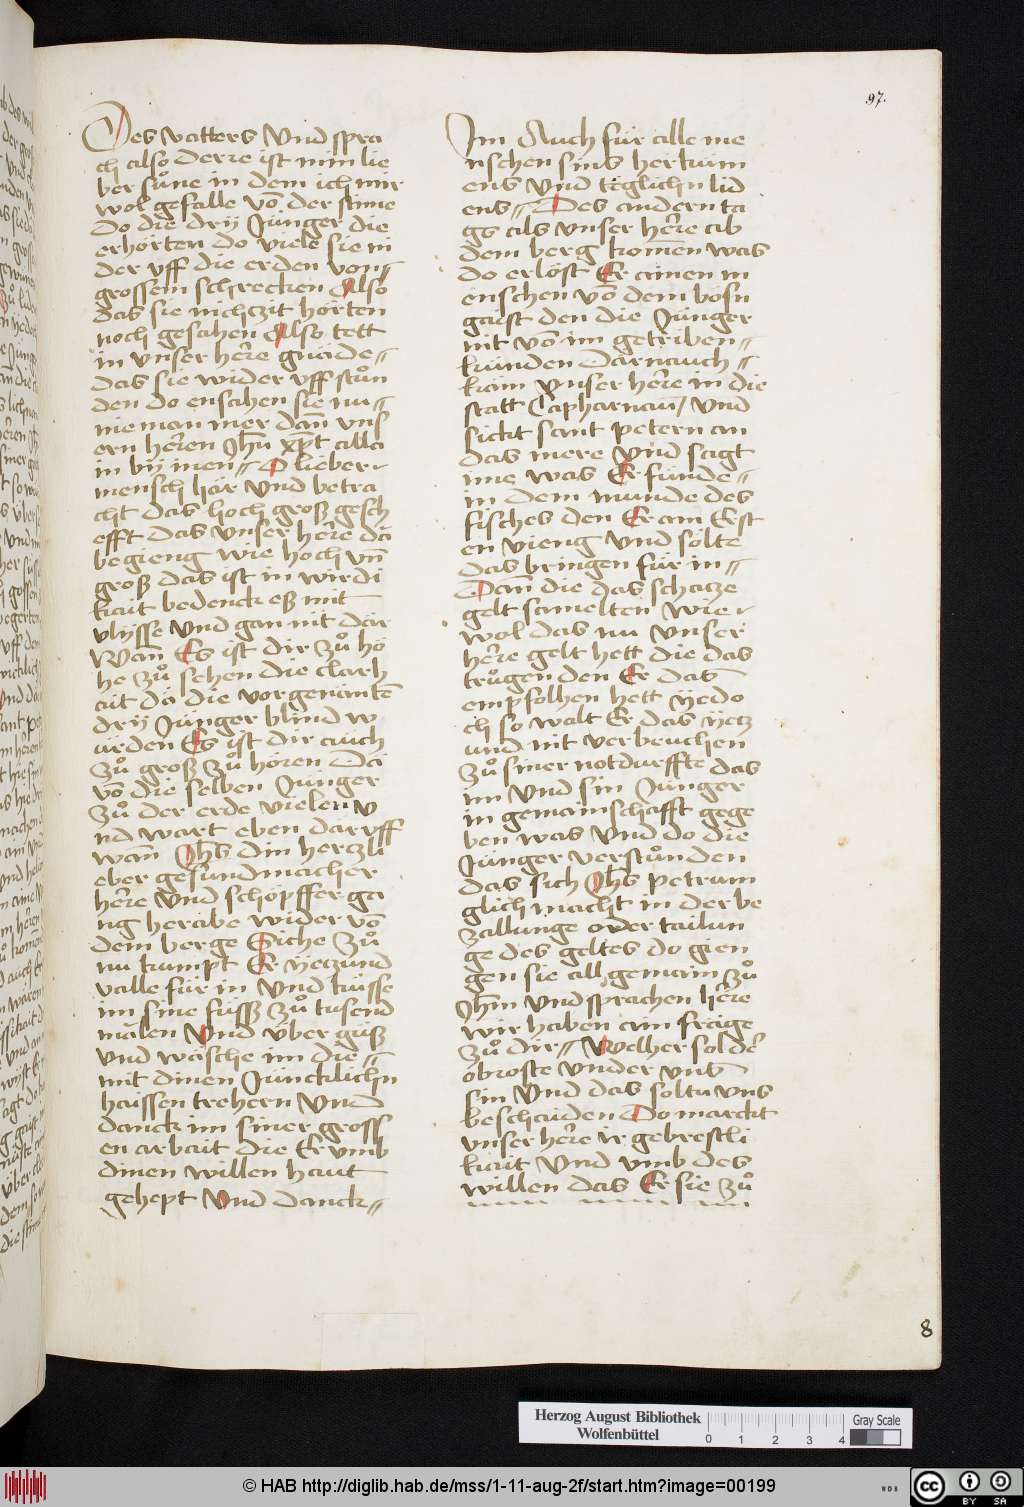 97.
Des vatters Vnd spra
ch also derre ist min lie
ber sůne in dem ich mir
wol gefalle võ der stime
Do die drÿ Jünger die
erhörten do viele sie in
der vff die erden von
grossem schrecken Also
das sie nichzit hörten
noch gesahen Also tett
in vnser here gnäde
das sie wider vff stůn
den do ensahen sie nu
nieman mer dañ vns
ern heren Jhũ xp̃t alla
in bÿ inen O lieber
mensch här Vnd betra
cht das hoch groß gesch
efft das vnser here da
begieng wie hoch vñ
groß das ist in wirdi
kait bedenck eß mit
vlÿsse Vnd gan nit dar
Wañ Es ist dir zů hö
he zů sehen die clarh
ait da die vorgenantẽ
drÿ Jünger blind w
urden Es ist dir auch
zů groß zů hören Da
võ die selben Jünger
zů der erde vielen v
nd wart eben dar vff
wañ Jhs din hertzli
eber gesundmacher
here Vnd schöpffer ga
ng herabe wider võ
dem berge Siche zů
nu kumpt Er ÿetzund
valle für in Vnd küsse
im sine füß zů tusend
malen Vnd über güß
vnd wäsche im die
mit dinen Jüncklichn
haissen trehern Vnd
danck im siner gross
en arbait die Er vmb
dinen willen haut
gehept Vnd danck
Im Auch für alle me
nschen sins herkum
ens Vnd teglichn lid
ens Des andern ta
gs als vnser here ab
dem berg komen was
do erlöst Er ainen m
enschen võ dem bösn
gaist den die Jünger
nit võ im getriben
kunden Darnauch
kam vnser here in die
statt Capharnaũ Vnd
sickt sant petern an
das mere Vnd sagt
ime was Er fünde
in dem munde des
fisches den Er am Erst
en vieng Vnd sölte
das bringen für in
Dañ die das schatze
gelt samelten wie
wol das nu vnser
here gelt hett die das
trůgen den Er das
empfolhen hett ÿedo
ch so walt Er das ÿetz
und nit verbruchen
zů siner notdurffte das
im Vnd sin Jünger
in gemainschafft gege
ben was Vnd do die
Jünger verstůnden
das sich Jhs petrum
glich macht in der be
zallunge oder tailun
ge des geltes do gien
gen sie all gemain zů
Jhm Vnd sprachen here
wir haben ain frage
zů dir Welher sol der
obroste vnder vns
sin Vnd das soltu vns
beschaiden Do marckt
vnser here ir gebrestli
kait Vnd vmb des
willen das Er sie zů
8
Herzog August Bibliothek
Wolfenbüttel
0 1 2 3 4
Gray Scale
© HAB http://diglib.hab.de/mss/1-11-aug-2f/start.htm?image=00199
WDB
cc BY SA